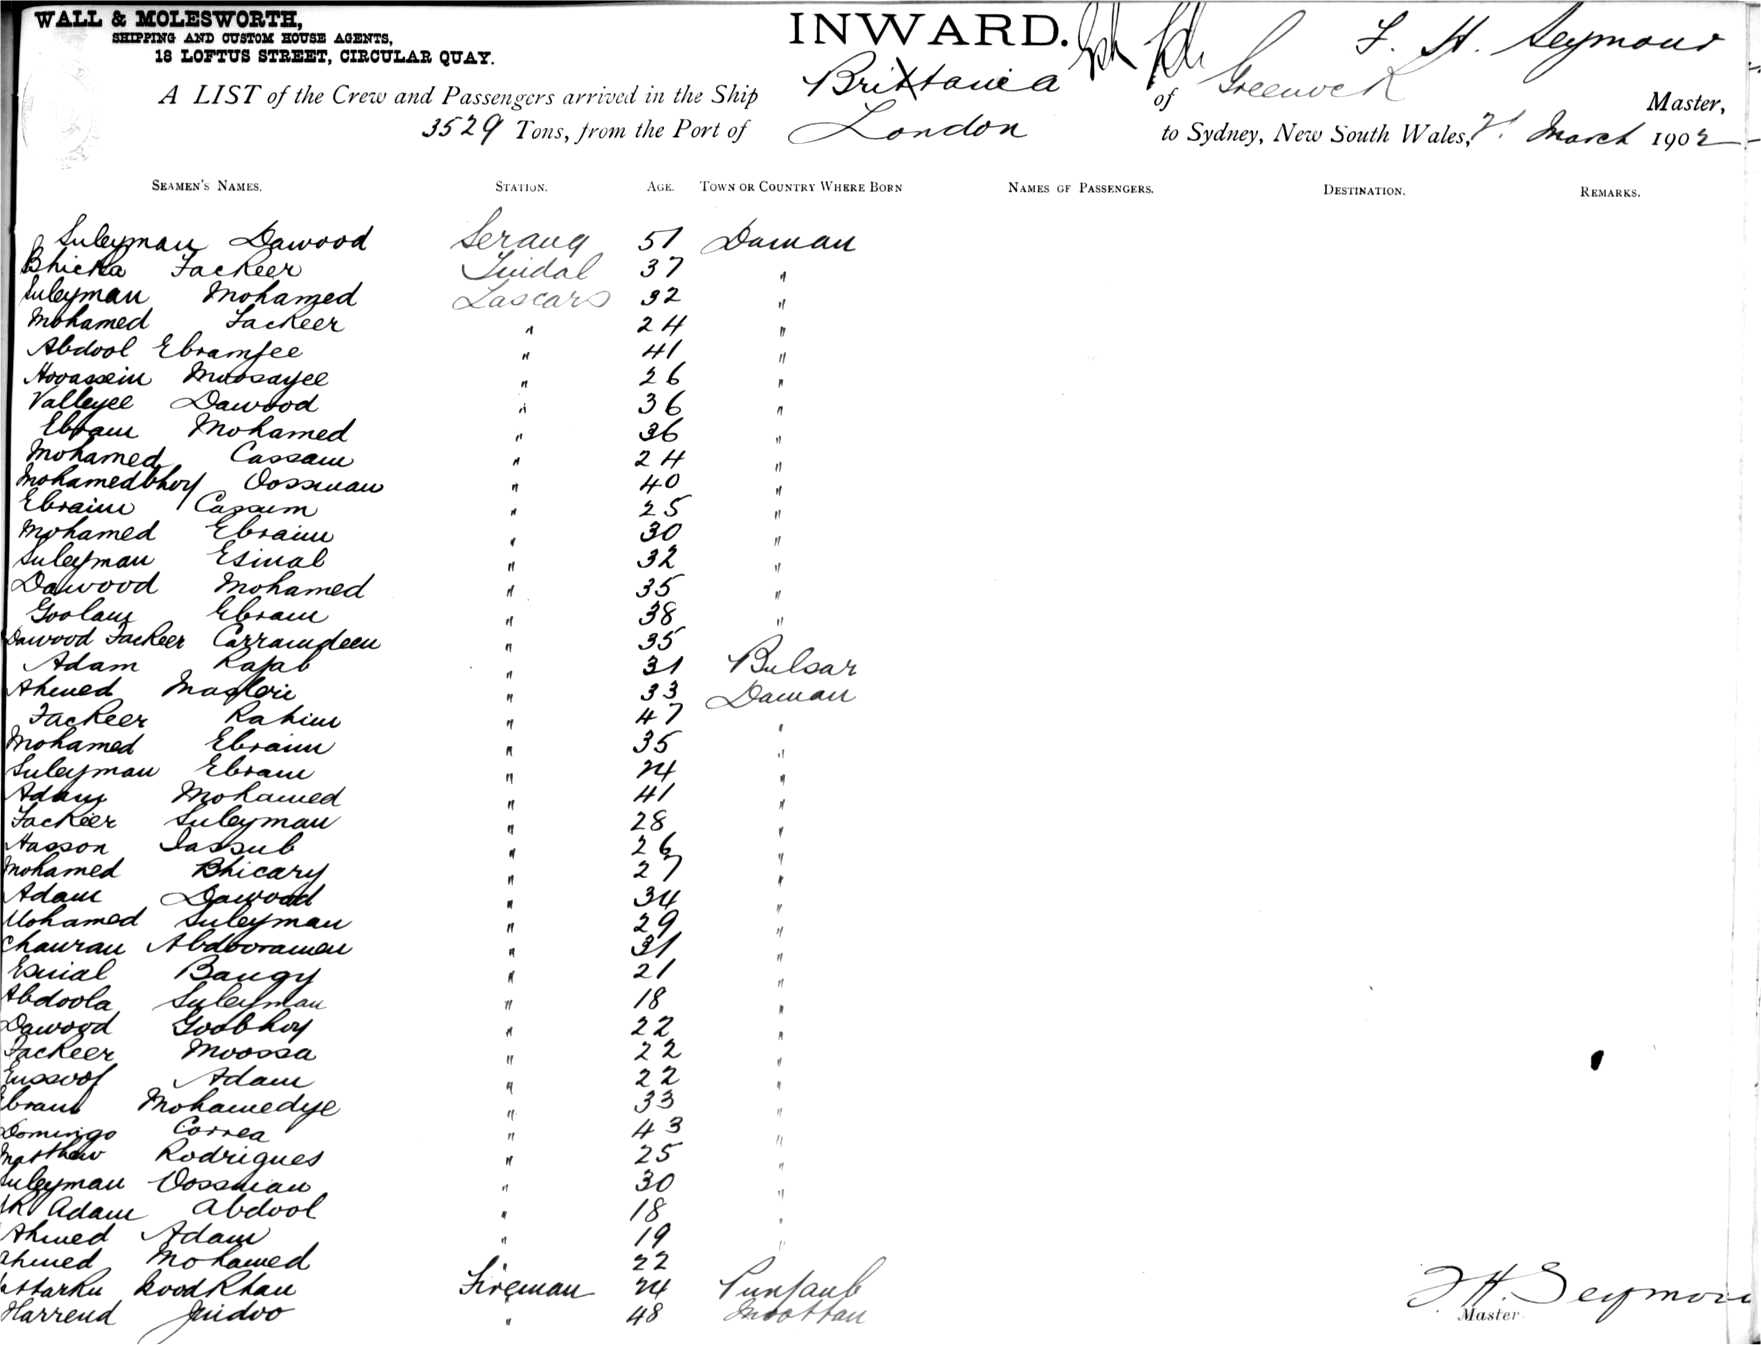 WALL & MOLESWORTH,
SHIPPING AND CUSTOM HOUSE AGENTS,
18 LOFTUS STREET, CIRCULAR QUAY.
INWARD.
F. H. Seymour
A LIST of the Crew and Passengers arrived in the Ship Brittania of Greenock Master,
3529 Tons, from the Port of London to Sydney, New South Wales, March 1902
SEAMEN'S NAMES. STATION. AGE. TOWN OR COUNTRY WHERE BORN NAMES OF PASSENGERS. DESTINATION. REMARKS.
Suleyman Dawood Serang 51 Daman
Bhicka Fackeer Tindal 37 "
Suleyman Mohamed Lascars 32 "
Mohamed Fackeer " 24 "
Abdool Ebramjee " 41 "
Hooassein Moosajee " 26 "
Valleyee Dawood " 36 "
Ebram Mohamed " 36 "
Mohamed Cassam " 24 "
Mohamedbhoy Oossman " 40 "
Ebraim Cassum " 25 "
Mohamed Ebraim " 30 "
Suleyman Esmal " 32 "
Dawood Mohamed " 35 "
Goolam Ebram " 38 "
Dawood Fackeer Carramdeen " 35
Adam Rajab " 31 Bulsar
Ahmed " 33 Daman
Fackeer Rahim " 47 "
Mohamed Ebraim " 35 "
Suleyman Ebram " 24 "
Adam Mohamed " 41 "
Fackeer Suleyman " 28 "
Hasson Iassub " 26 "
Mohamed Bhicary " 27 "
Adam Dawood " 34 "
Mohamed Suleyman " 29 "
Abdooramen " 31 "
Esmal Bangy " 21 "
Abdoola Suleyman " 18 "
Dawood Goobhoy " 22 "
Fackeer Moossa " 22 "
Eussoof Adam " 22 "
Ebram Mohamedye " 33 "
Domingo Correa " 43 "
Matthew Rodrigues " 25 "
Suleyman Oossman " 30 "
Adam Abdool " 18 "
Ahmed Adam " 19 "
Ahmed Mohamed " 22
Khan Fireman 24 Punjaub
" 48
F. H. Seymour
Master